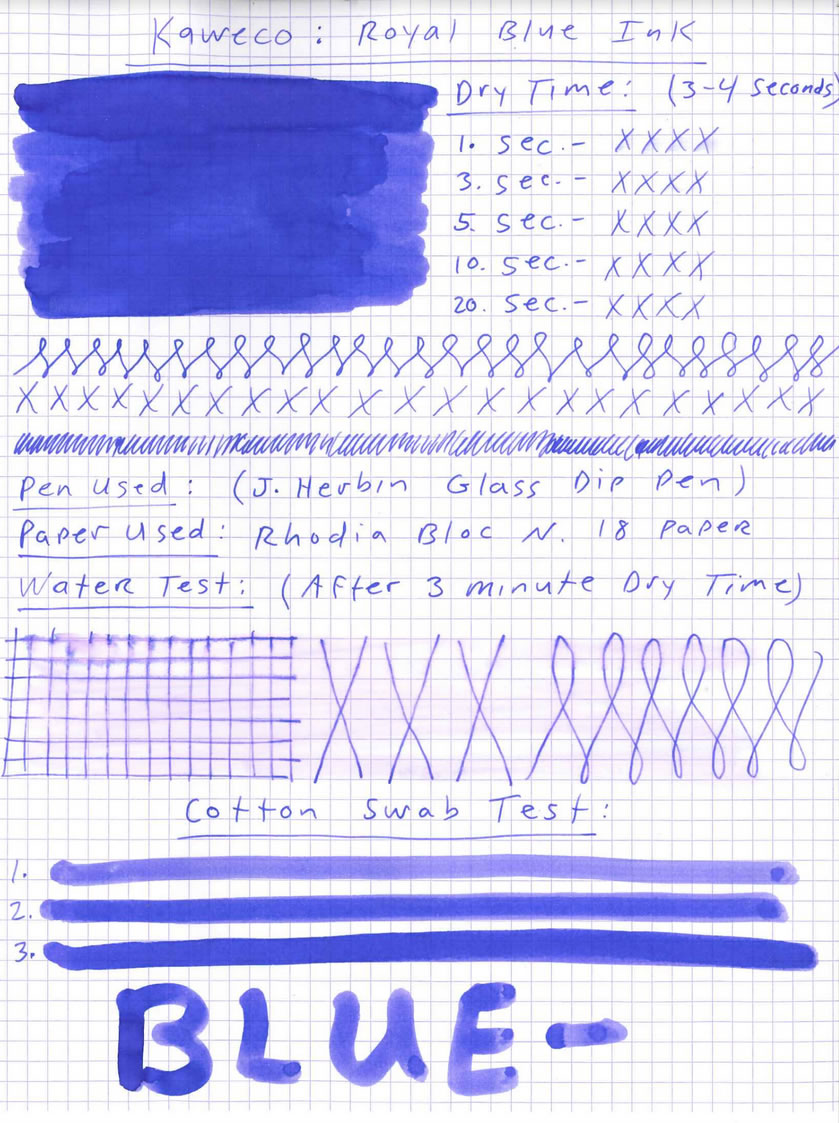 Kaweco: Royal Blue Ink
Dry Time: (3-4 seconds)
1. sec.- XXXX
3. sec.- XXXX
5. sec.- XXXX
10. sec.- XXXX
20. sec.- XXXX
X X X X X X X X X X X X X X X X X X X X X X X
Pen Used: (J. Herbin Glass Dip Pen)
Paper Used: Rhodia Bloc N. 18 Paper
Water Test: (After 3 minute Dry Time)
X X X
Cotton Swab Test:
1.
2.
3.
BLUE-